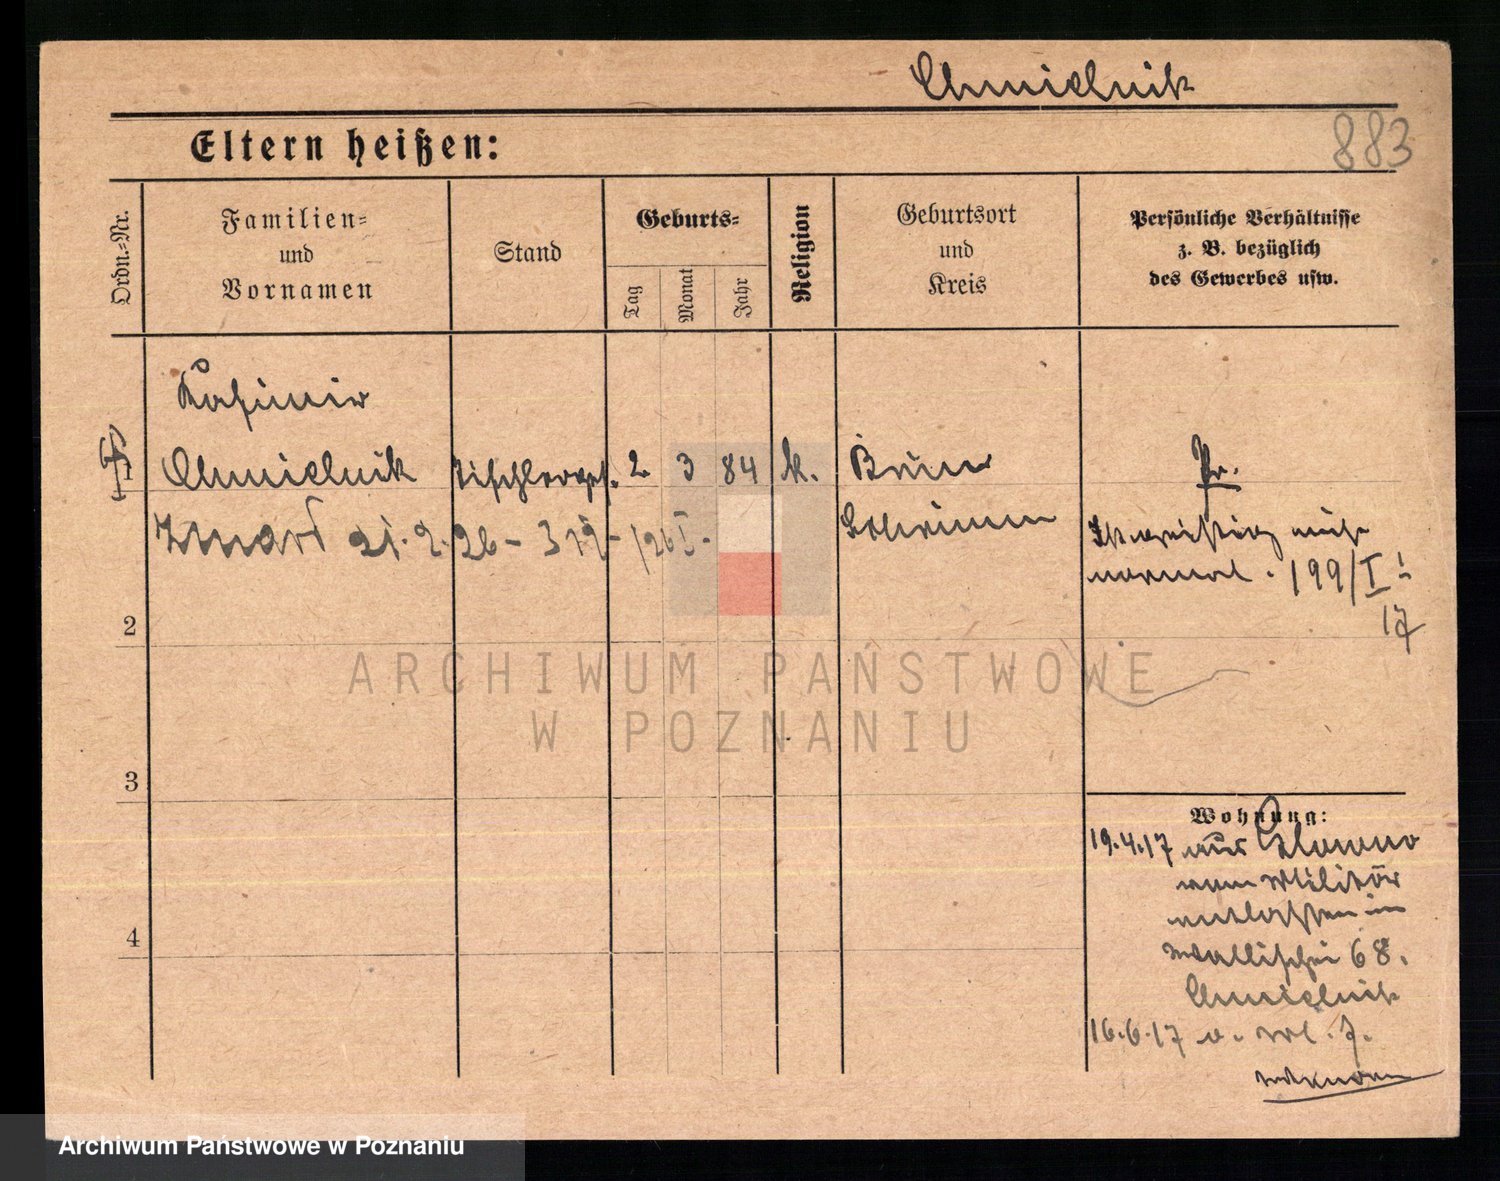 Chmielnik
Eltern heißen:
883
Ordn.-Nr.
Familien-
und
Vornamen
Stand
Geburts-
Tag
Monat
Jahr
Religion
Geburtsort
und
Kreis
Persönliche Verhältnisse
z. B. bezüglich
des Gewerbes usw.
Kasimir
1 Chmielnik 2 3 84 k.
Pr.
Schrimm
21. 2. 26
normal. 199/I
17
2
ARCHIWUM PAŃSTWOWE
W POZNANIU
3
Wohnung:
19.4.17 aus
vom Militär
entlassen in
4
Wallischei 68.
Chmielnik
16.6.17
Archiwum Państwowe w Poznaniu